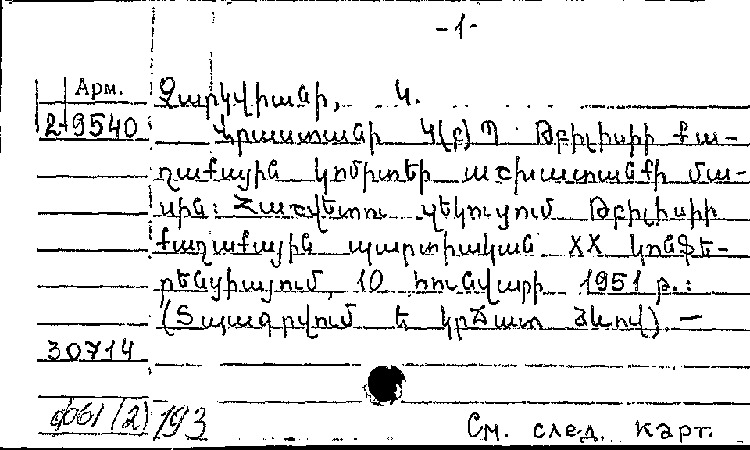 -1-
Арм. Չարկվիանի, Կ.
2-9540 Վրաստանի Կ(բ)Պ Թբիլիսիի քա-
ղաքային կոմիտեի աշխատանքի մա-
սին: Հաշվետու զեկուցում Թբիլիսիի
քաղաքային պարտիական XX կոնֆե-
րենցիայում, 10 հունվարի 1951 թ.:
(Տպագրվում է կրճատ ձևով) —
30714
ф61 (2) 193
См. след. карт.